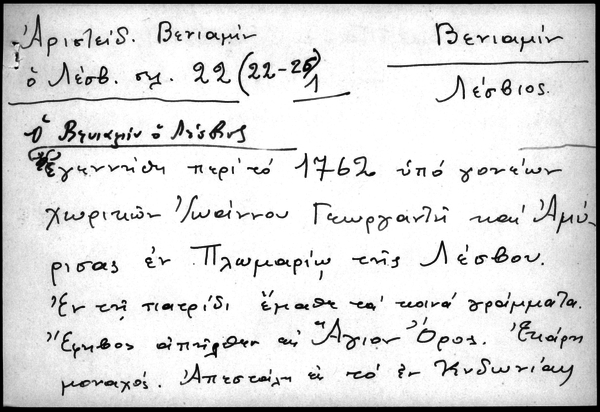 Ἀριστείδ. Βενιαμίν
Βενιαμίν
ὁ Λέσβ. σελ. 22 (22-25)
1
Λέσβιος.
Ὁ Βενιαμίν ὁ Λέσβιος
ἐγεννήθη περί τό 1762 ὑπό γονέων
χωρικῶν Ἰωάννου Γεωργαντῆ καί Ἀμύ-
ρισας ἐν Πλωμαρίῳ τῆς Λέσβου.
Ἐν τῇ πατρίδι ἔμαθε τά κοινά γράμματα.
Ἔφηβος ἀπῆλθεν εἰς Ἅγιον Ὄρος. Ἐκάρη
μοναχός. Ἀπεστάλη εἰς τό ἐν Κυδωνίαις